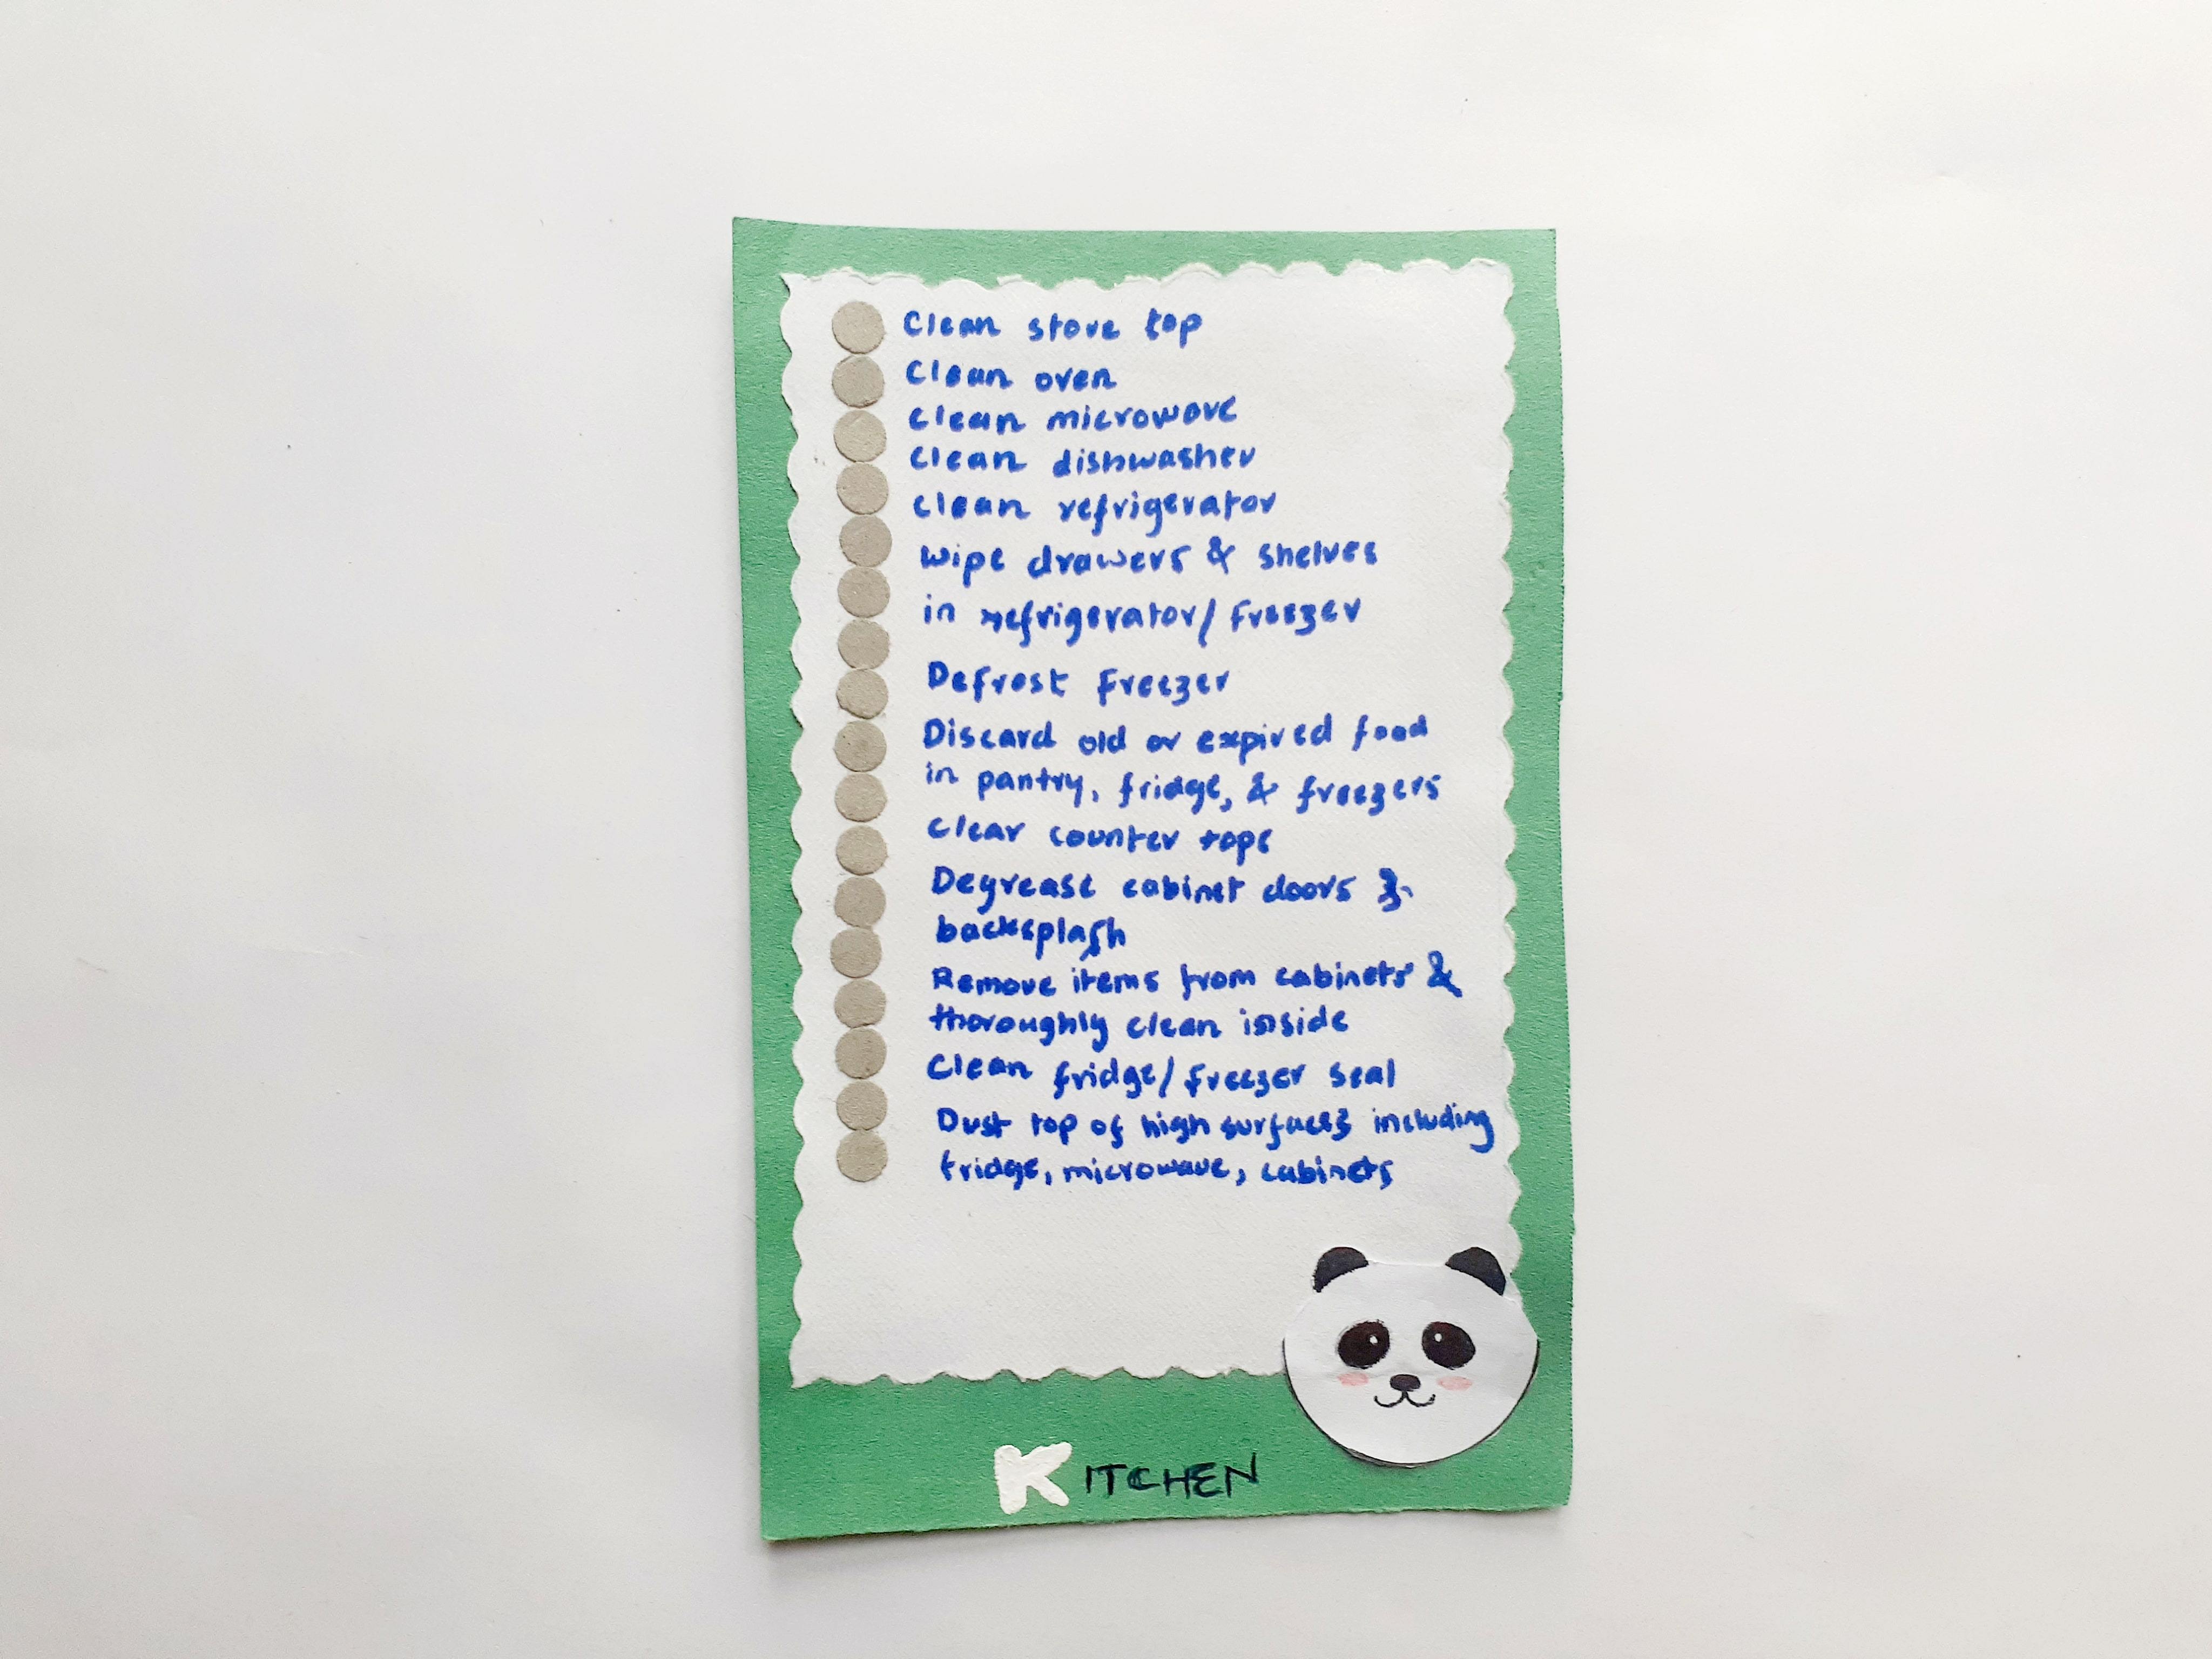 Clean stove top
Clean oven
clean microwave
clean dishwasher
clean refrigerator
wipe drawers & shelves
in refrigerator/freezer
Defrost freezer
Discard old or expired food
in pantry, fridge, & freezers
clear counter tops
Degrease cabinet doors &
backsplash
Remove items from cabinets &
thoroughly clean inside
Clean fridge/freezer seal
Dust top of high surfaces including
fridge, microwave, cabinets
KITCHEN